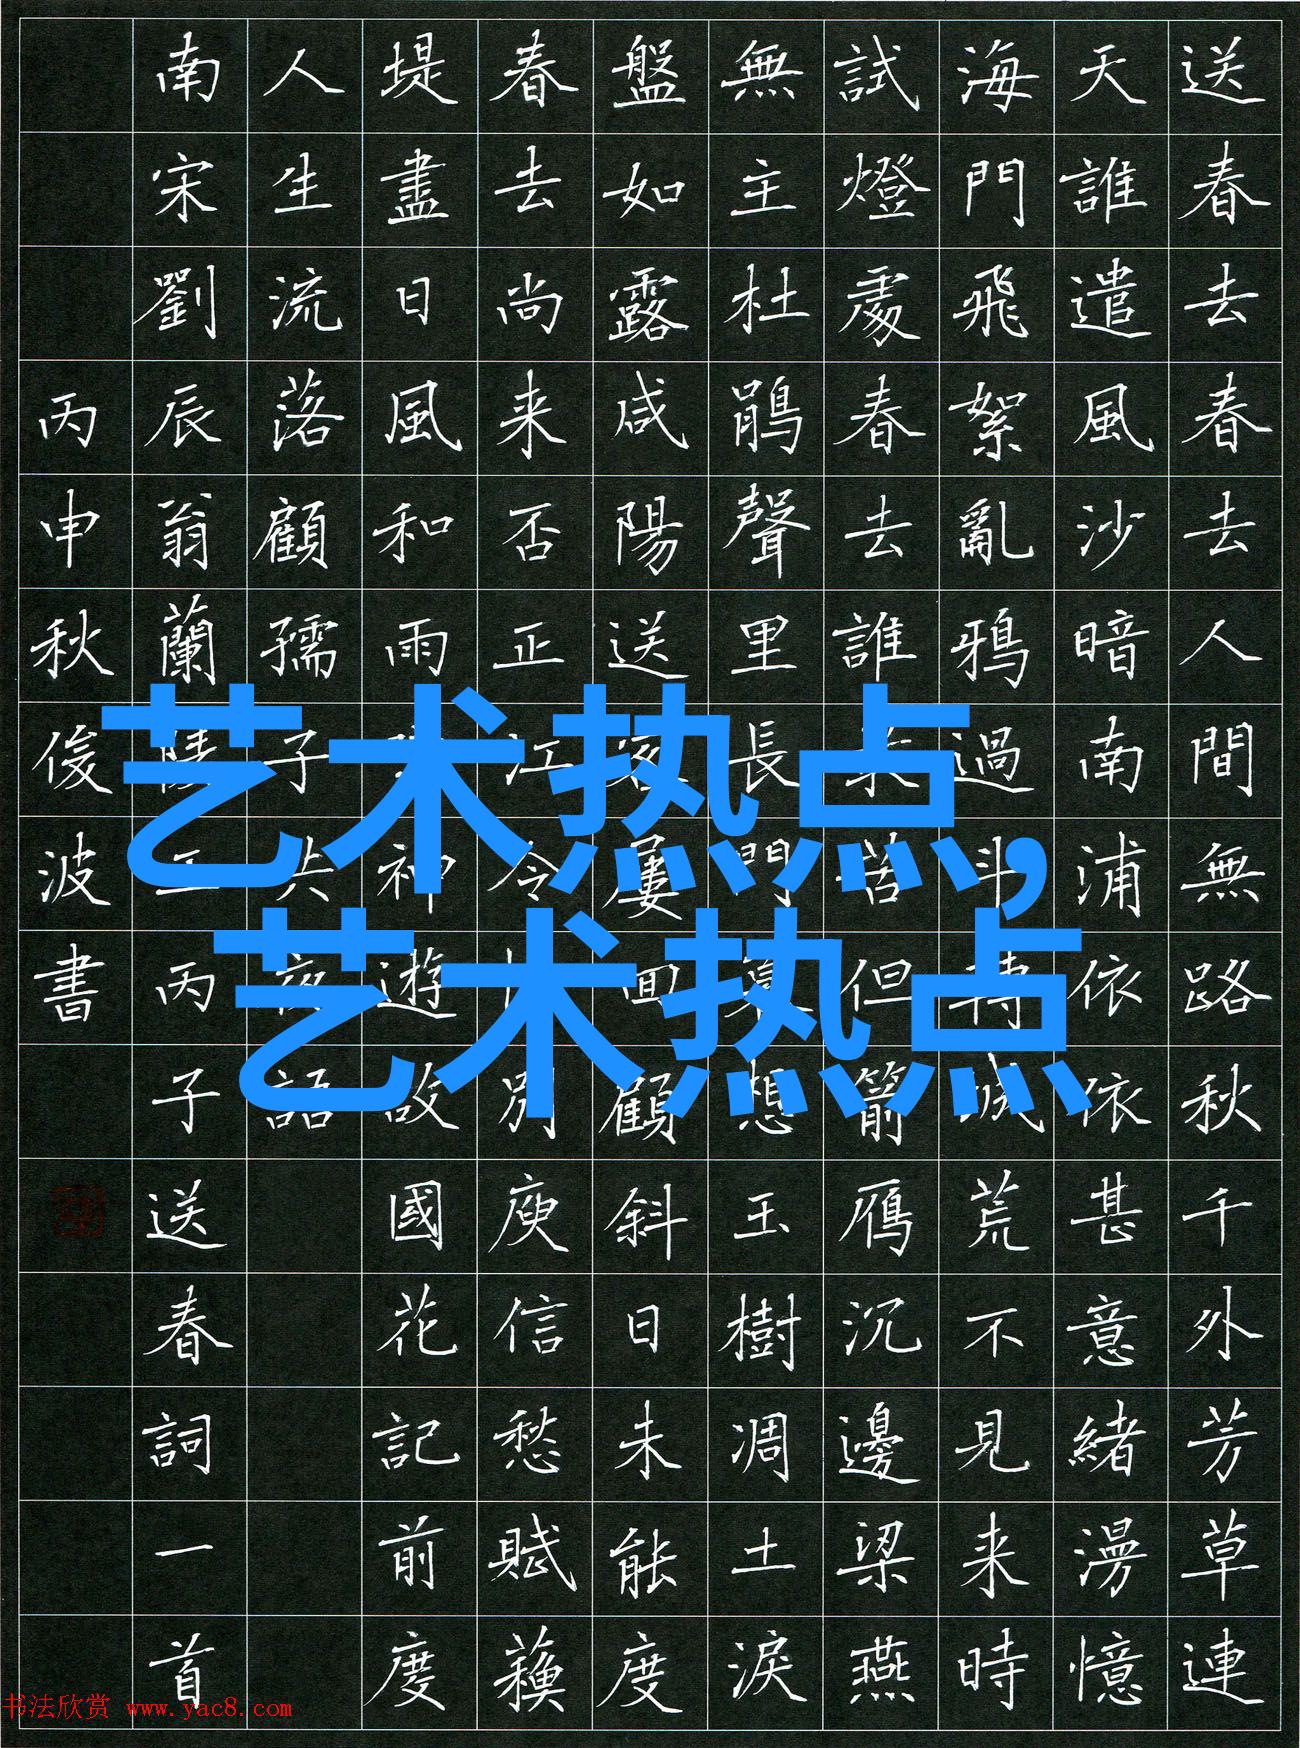 送春去春去人間無路秋千外芳草連
天誰遣風沙暗南浦依依甚意緒漫憶
海門飛絮亂鴉過斗轉城荒不見来時
試燈處春去誰来苦但箭鴈沉邊梁燕
無主杜鵑聲里長門暮想玉樹凋土淚
盤如露咸陽送客屢囬顧斜日未能度
春去尚来否正江令別庾信愁賦蘇
堤盡日風和雨神遊故國花記前度
人生流落顧孺子共夜語
南宋劉辰翁蘭陵王丙子送春詞一首
丙申秋俊波書
艺术热点,
艺术热点
书法欣赏 www.yac8.com